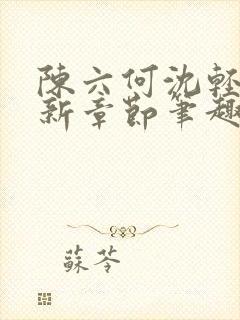 陳六何沈輕
新章節筆趣
蘇苓